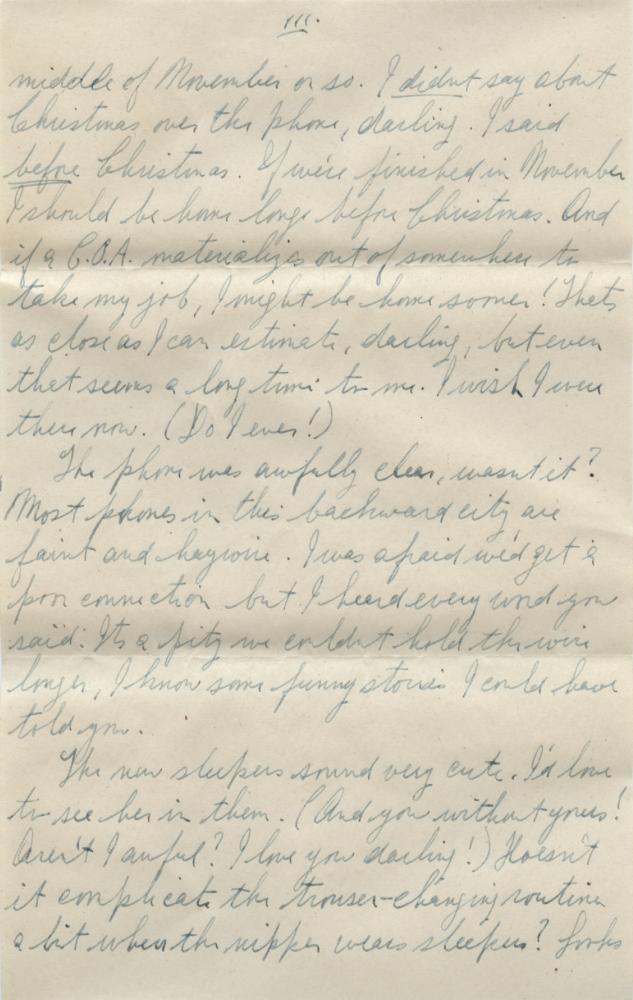 III.
middle of November or so. I didn't say about
Christmas over the phone, darling. I said
before Christmas. If we're finished in November
I should be home long before Christmas. And
if a C.O.A. materializes out of somewhere to
take my job, I might be home sooner! Thats
as close as I can estimate, darling, but even
that seems a long time to me. I wish I were
there now. (Do I ever!)
The phone was awfully clear, wasn't it?
Most phones in this backward city are
faint and haywire. I was afraid we'd get a
poor connection but I heard every word you
said. Its a pity we couldn't hold the wire
longer, I know some funny stories I could have
told you.
The new sleepers sound very cute. I'd love
to see her in them. (And you without yours!
Aren't I awful? I love you darling!) Doesn't
it complicate the trouser-changing routine
a bit when the nipper wears sleepers? Looks